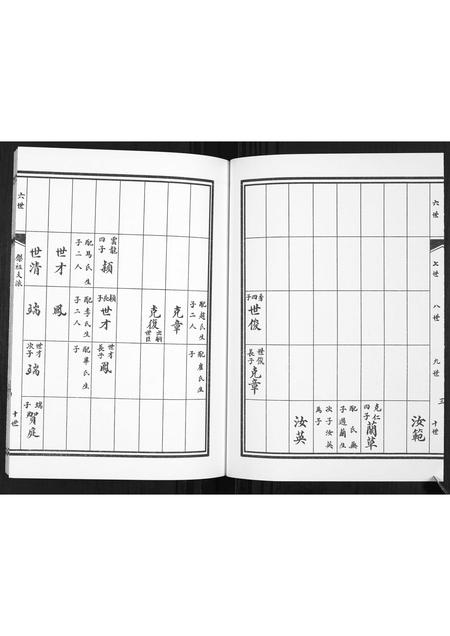 六世
七世
八世
九世
十世
汝範
克仁四子
蘭草
配氏無
子過蘭生
次子汝英
為子
汝英
青四子
世俊
世俊長子
克章
配趙氏生
子二人
克章
克復
出嗣
世臣
配盧氏生
子
雲龍四子
穎
配馬氏生
子二人
世才
世清
穎長子
世才
配李氏生
子二人
鳳
瑞
世才長子
鳳
配華氏生
子
世才次子
瑞
瑞子
賀廷
六世
傑祖支派
十世